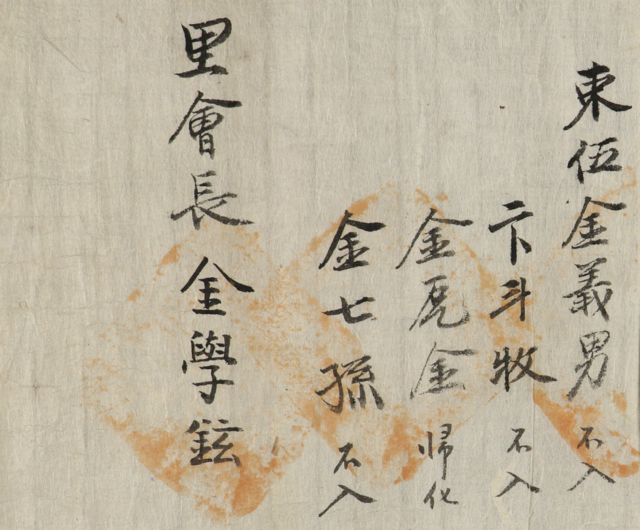 東伍金義男 不入
卞斗牧 不入
金虎金 帰化
金七孫 不入
里會長 金學鉉